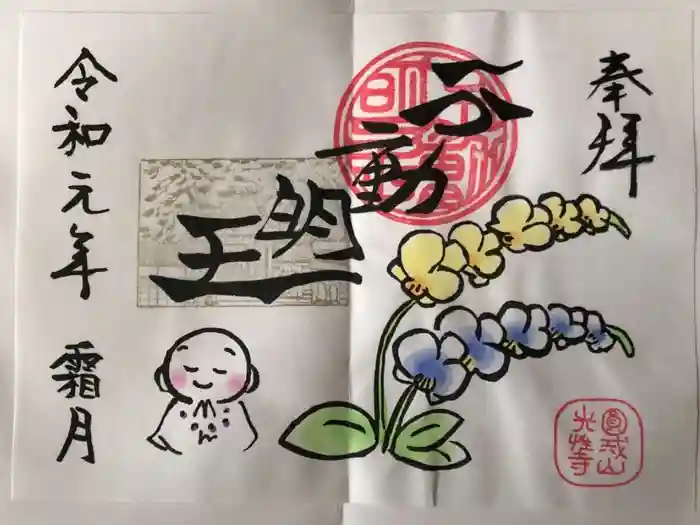 奉拝
不動明王
令和元年 霜月
圓戒山
光性寺